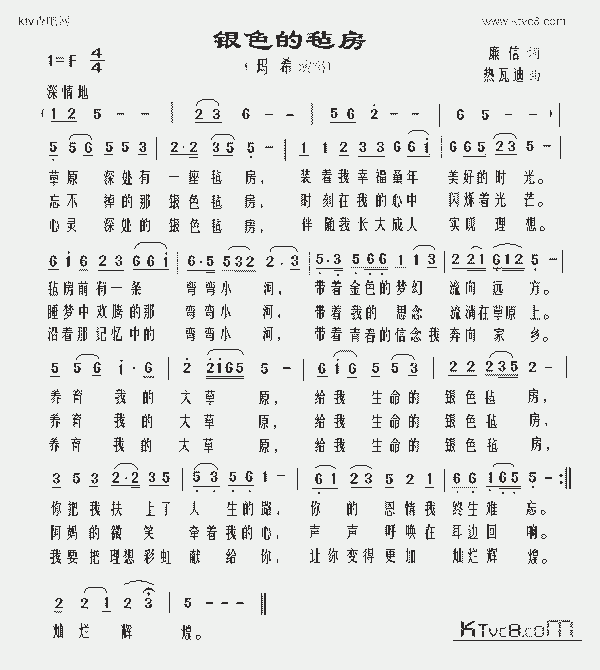 www.ktvc8.com
银色的毡房
1=F 4/4
（玛 希 演唱）
廉 信 词
热瓦迪 曲
深情地
( 1 2 5 - - | 2 3 6 - - | 5 6 2 - - | 6 5 - - )
5 5 6 5 5 3 | 2·2 3 5 5 - | 1 1 2 3 3 6 6 1 | 6 6 5 2 3 5 -
草原 深处有 一座毡 房， 装着我幸福童年 美好的时 光。
忘不 掉的那 银色毡 房， 时刻在我的心中 闪烁着光 芒。
心灵 深处的 银色毡 房， 伴随我长大成人 实现 理 想。
6 1 6 2 3 6 6 1 | 6·5 5 3 2 2 - | 5·3 5 6 6 1 1 3 | 2 2 1 6 1 2 5 -
毡房前有一条 弯弯小 河， 带着金色的梦幻 流向 远 方。
睡梦中欢腾的那 弯弯小 河， 带着我的 思念 流淌在草原上。
沿着那记忆中的 弯弯小 河， 带着青春的信念我奔向 家 乡。
5 5 6 1·6 | 2 2 1 6 5 5 - | 6 1 6 5 5 3 | 2 2 2 2 3 5 2 -
养育 我的 大草 原， 给我 生命的 银色毡 房，
养育 我的 大草 原， 给我 生命的 银色毡 房，
养育 我的 大草 原， 给我 生命的 银色毡 房，
3 5 3 2·2 3 5 | 5 3 5 6 1 - | 6 1 2 3 5 2 1 | 6 6 1 6 5 5 - :||
你把我扶 上了 人 生的路， 你 的 恩情我 终生难 忘。
阿妈的微 笑 牵着我的心， 声 声 呼唤在 耳边回 响。
我要把理想彩虹 献 给 你， 让你变得更加 灿烂辉 煌。
2 2 1 2 3 | 5 - - - ||
灿 烂 辉 煌。
KTvc8.com